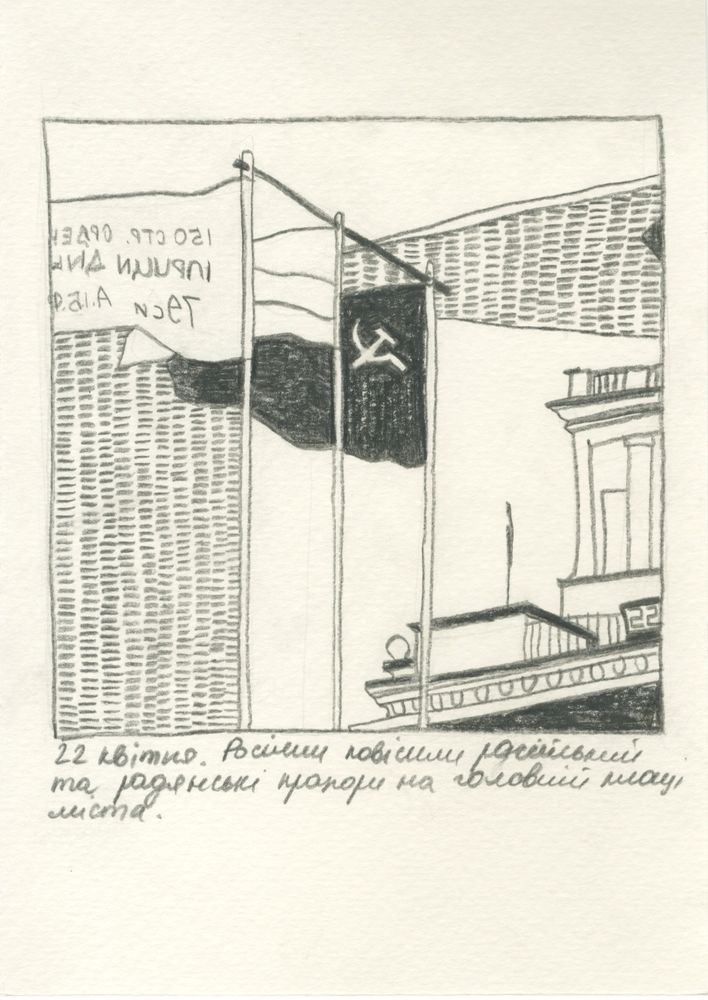 150 СТР. ОРДЕ
79си А.1Б.Ф
22
22 квітня. Росіяни повісили російський
та радянські прапори на головній площі
міста.